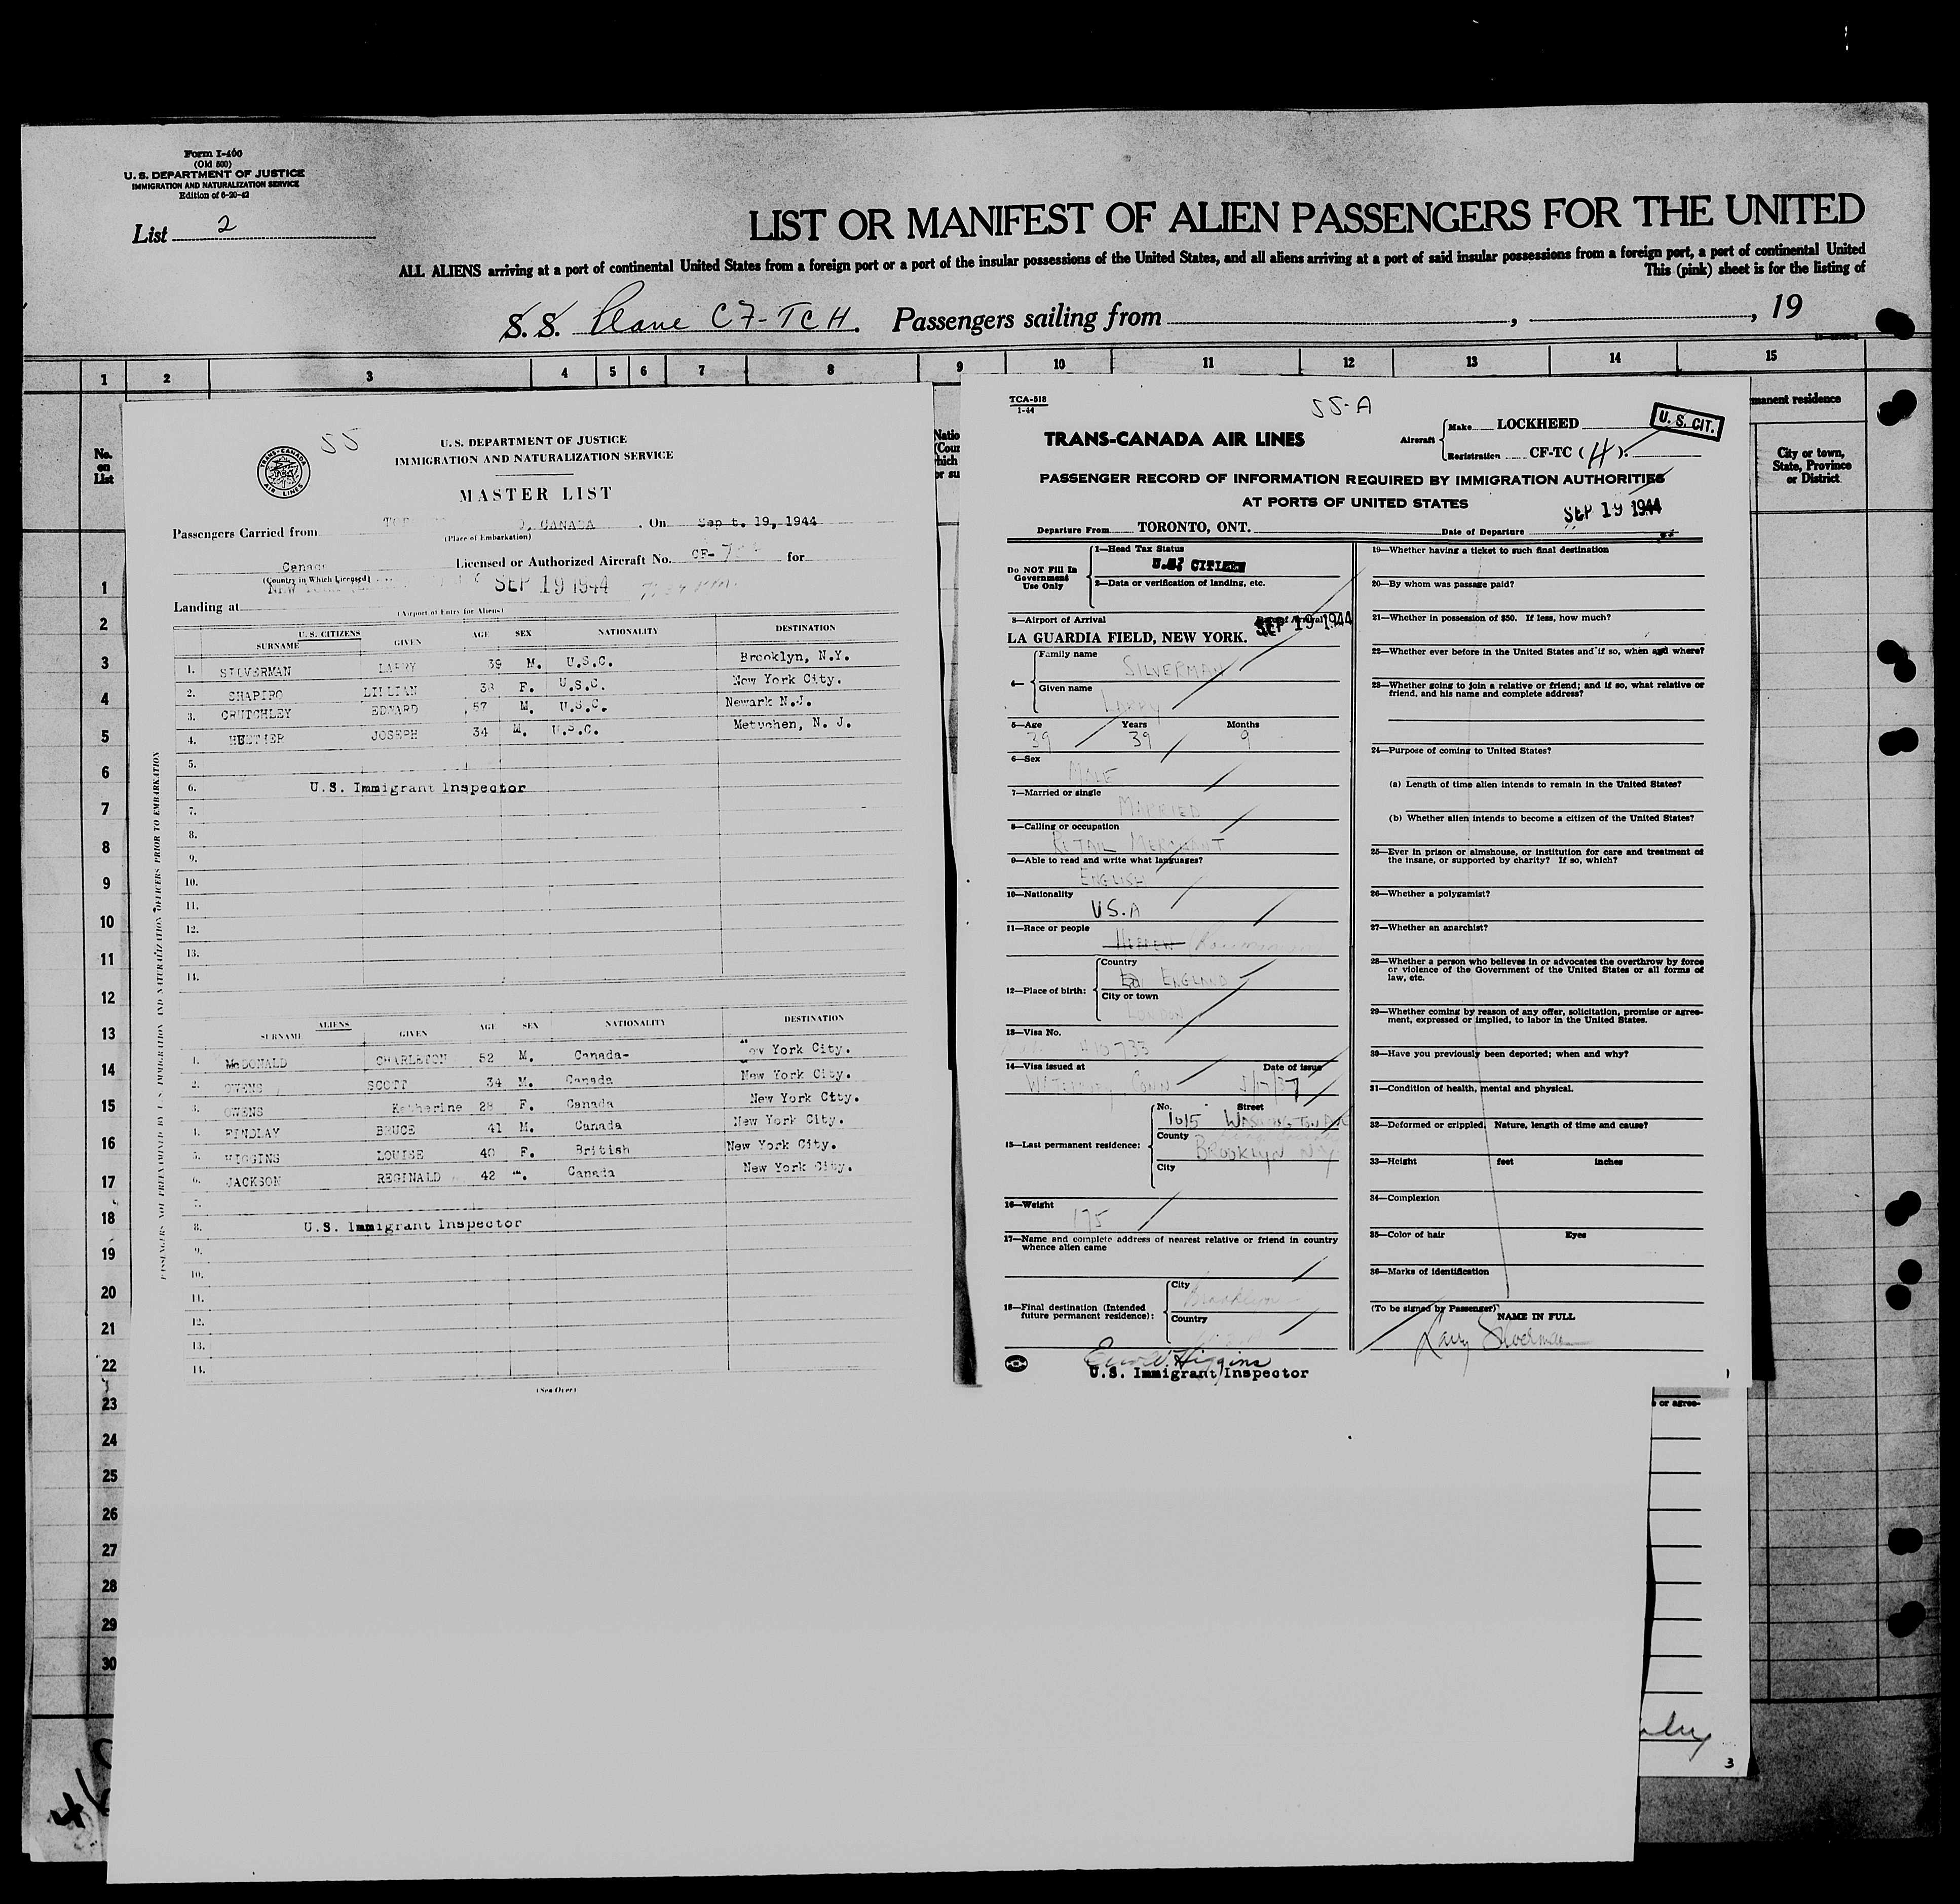 Form I-466
(Old 500)
U. S. DEPARTMENT OF JUSTICE
IMMIGRATION AND NATURALIZATION SERVICE
Edition of 6-20-42
List 2
LIST OR MANIFEST OF ALIEN PASSENGERS FOR THE UNITED
ALL ALIENS arriving at a port of continental United States from a foreign port or a port of the insular possessions of the United States, and all aliens arriving at a port of said insular possessions from a foreign port, a port of continental United
This (pink) sheet is for the listing of
S. S. Plane CF-TCH. Passengers sailing from , , 19
1 2 3 4 5 6 7 8 9 10 11 12 13 14 15
No. on List
manent residence
City or town, State, Province or District
1
2
3
4
5
6
7
8
9
10
11
12
13
14
15
16
17
18
19
20
21
22
23
24
25
26
27
28
29
30
55
TRANS-CANADA AIR LINES
U. S. DEPARTMENT OF JUSTICE
IMMIGRATION AND NATURALIZATION SERVICE
MASTER LIST
Passengers Carried from CANADA . On Sept. 19, 1944
(Place of Embarkation)
Licensed or Authorized Aircraft No. CF- for
(Country in Which Licensed)
SEP 19 1944
Landing at
(Airport of Entry for Aliens)
PASSENGERS NOT PREEXAMINED BY U.S. IMMIGRATION AND NATURALIZATION OFFICERS PRIOR TO EMBARKATION
U. S. CITIZENS
SURNAME GIVEN AGE SEX NATIONALITY DESTINATION
1. SILVERMAN LARRY 39 M. U.S.C. Brooklyn, N.Y.
2. SHAPIRO LILLIAN 38 F. U.S.C. New York City.
3. CRUTCHLEY EDWARD 57 M. U.S.C. Newark N.J.
4. JOSEPH 34 M. U.S.C. Metuchen, N. J.
5.
6. U.S. Immigrant Inspector
7.
8.
9.
10.
11.
12.
13.
14.
ALIENS
SURNAME GIVEN AGE SEX NATIONALITY DESTINATION
1. McDONALD CHARLETON 52 M. Canada- New York City.
2. OWENS SCOTT 34 M. Canada New York City.
3. OWENS Katherine 28 F. Canada New York City.
4. FINDLAY BRUCE 41 M. Canada New York City.
5. HIGGINS LOUISE 40 F. British New York City.
6. JACKSON REGINALD 42 M. Canada New York City.
7.
8. U.S. Immigrant Inspector
9.
10.
11.
12.
13.
14.
(See Over)
TCA-518
1-44
55-A
TRANS-CANADA AIR LINES
Aircraft Make LOCKHEED
Registration CF-TC (H).
U. S. CIT.
PASSENGER RECORD OF INFORMATION REQUIRED BY IMMIGRATION AUTHORITIES
AT PORTS OF UNITED STATES
Departure From TORONTO, ONT. Date of Departure SEP 19 1944
Do NOT Fill In Government Use Only
1—Head Tax Status
U.S. CITIZEN
2—Data or verification of landing, etc.
3—Airport of Arrival Date of Arrival
LA GUARDIA FIELD, NEW YORK. SEP 19 1944
4— Family name SILVERMAN
Given name LARRY
5—Age Years Months
39 39 9
6—Sex
MALE
7—Married or single
MARRIED
8—Calling or occupation
RETAIL MERCHANT
9—Able to read and write what languages?
ENGLISH
10—Nationality
U.S.A
11—Race or people
12—Place of birth: Country ENGLAND
City or town
LONDON
13—Visa No.
14—Visa issued at Date of issue
15—Last permanent residence: No. Street
1015 WASHINGTON AVE
County
BROOKLYN NY
City
16—Weight
175
17—Name and complete address of nearest relative or friend in country whence alien came
18—Final destination (Intended future permanent residence): City
Brooklyn
Country
Higgins
U.S. Immigrant Inspector
19—Whether having a ticket to such final destination
20—By whom was passage paid?
21—Whether in possession of $50. If less, how much?
22—Whether ever before in the United States and if so, when and where?
23—Whether going to join a relative or friend; and if so, what relative or friend, and his name and complete address?
24—Purpose of coming to United States?
(a) Length of time alien intends to remain in the United States?
(b) Whether alien intends to become a citizen of the United States?
25—Ever in prison or almshouse, or institution for care and treatment of the insane, or supported by charity? If so, which?
26—Whether a polygamist?
27—Whether an anarchist?
28—Whether a person who believes in or advocates the overthrow by force or violence of the Government of the United States or all forms of law, etc.
29—Whether coming by reason of any offer, solicitation, promise or agreement, expressed or implied, to labor in the United States.
30—Have you previously been deported; when and why?
31—Condition of health, mental and physical.
32—Deformed or crippled. Nature, length of time and cause?
33—Height feet inches
34—Complexion
35—Color of hair Eyes
36—Marks of identification
(To be signed by Passenger) NAME IN FULL
Larry Silverman
or agree-
3